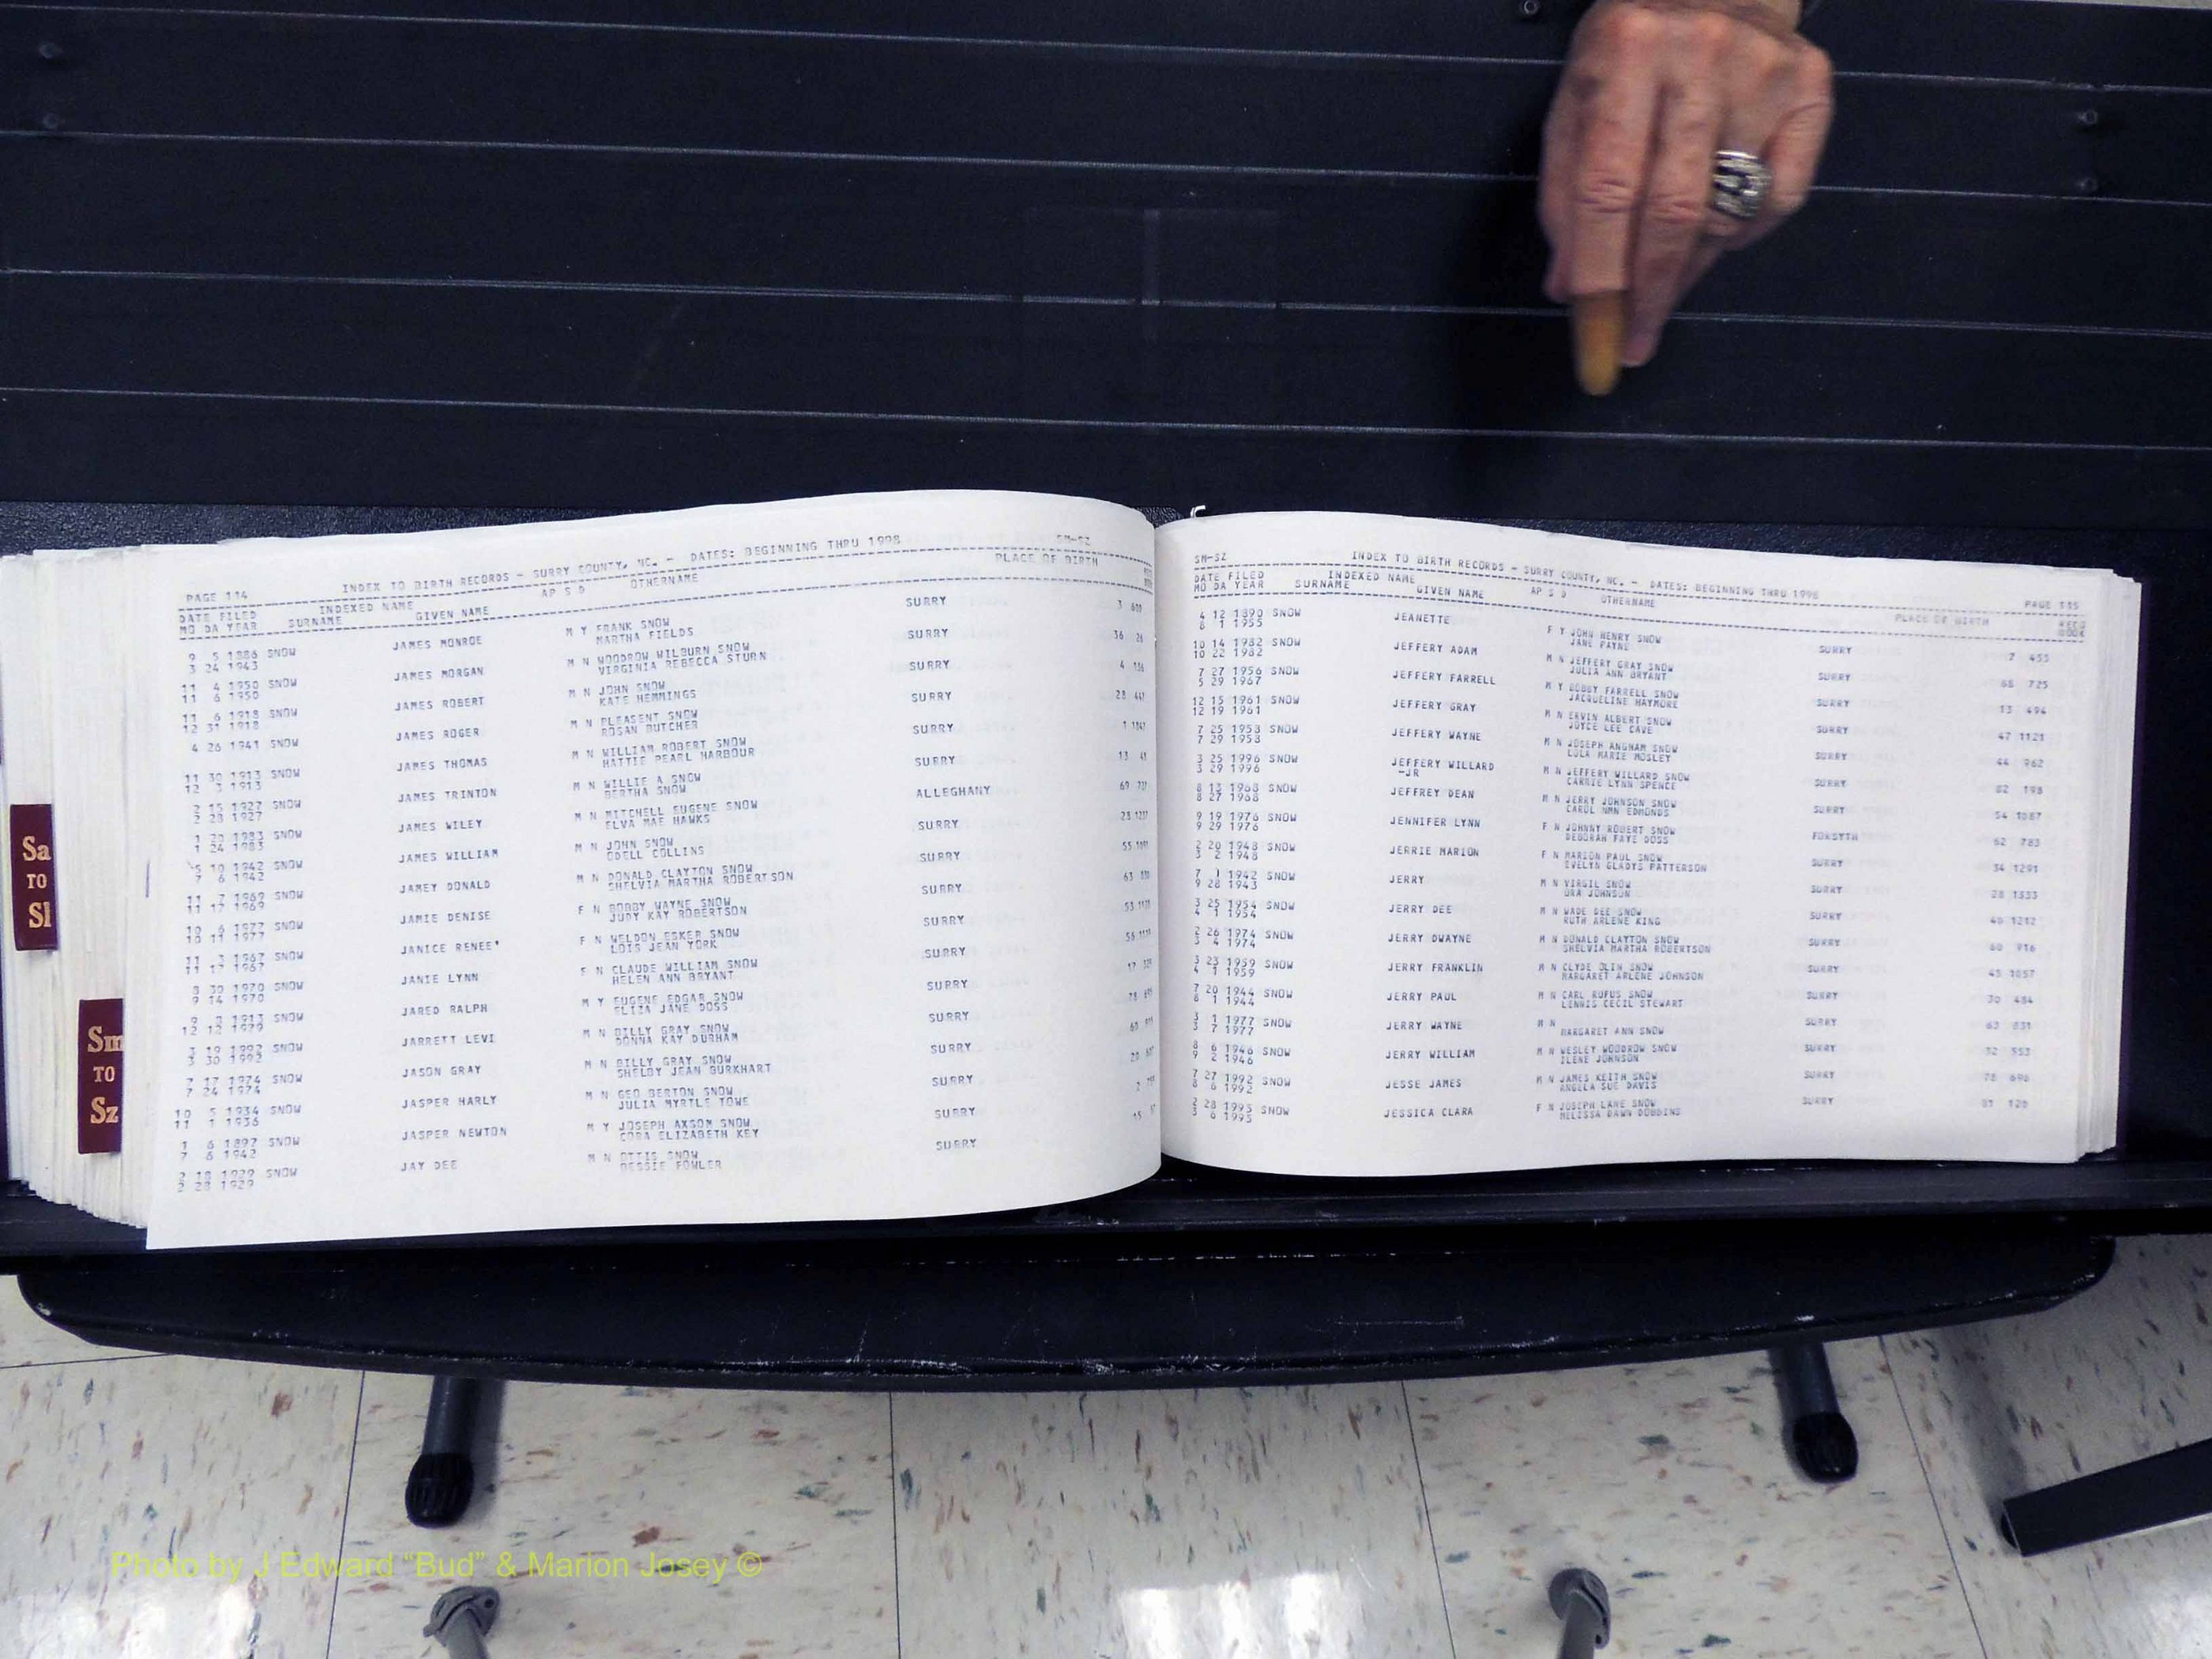 PAGE 114 INDEX TO BIRTH RECORDS - SURRY COUNTY, NC. - DATES: BEGINNING THRU 1998 SM-SZ
DATE FILED INDEXED NAME AP S D OTHERNAME PLACE OF BIRTH
MO DA YEAR SURNAME GIVEN NAME
9 5 1886 SNOW JAMES MONROE M Y FRANK SNOW SURRY 3
3 24 1943 MARTHA FIELDS
11 4 1950 SNOW JAMES MORGAN M N WOODROW WILBURN SNOW SURRY 36 26
11 6 1950 VIRGINIA REBECCA STURN
11 6 1918 SNOW JAMES ROBERT M N JOHN SNOW SURRY 4
12 31 1918 KATE HEMMINGS
4 26 1941 SNOW JAMES ROGER M N PLEASENT SNOW SURRY 28
ROSAN BUTCHER
11 30 1913 SNOW JAMES THOMAS M N WILLIAM ROBERT SNOW SURRY 1
12 3 1913 HATTIE PEARL HARBOUR
2 15 1927 SNOW JAMES TRINTON M N WILLIE A SNOW SURRY 13
2 28 1927 BERTHA SNOW
1 20 1983 SNOW JAMES WILEY M N MITCHELL EUGENE SNOW ALLEGHANY 69
1 24 1983 ELVA MAE HAWKS
5 10 1942 SNOW JAMES WILLIAM M N JOHN SNOW SURRY 28
7 6 1942 ODELL COLLINS
11 7 1969 SNOW JAMEY DONALD M N DONALD CLAYTON SNOW SURRY 55
11 17 1969 SHELVIA MARTHA ROBERTSON
10 6 1977 SNOW JAMIE DENISE F N BOBBY WAYNE SNOW SURRY 63
10 11 1977 JUDY KAY ROBERTSON
11 3 1967 SNOW JANICE RENEE' F N WELDON ESKER SNOW SURRY 53
11 17 1967 LOIS JEAN YORK
8 30 1970 SNOW JANIE LYNN F N CLAUDE WILLIAM SNOW SURRY 56
9 14 1970 HELEN ANN BRYANT
9 8 1913 SNOW JARED RALPH M Y EUGENE EDGAR SNOW SURRY 17
12 12 1979 ELIZA JANE DOSS
3 19 1992 SNOW JARRETT LEVI M N BILLY GRAY SNOW SURRY 78
3 30 1992 DONNA KAY DURHAM
7 17 1974 SNOW JASON GRAY M N BILLY GRAY SNOW SURRY 60
7 24 1974 SHELBY JEAN BURKHART
10 5 1934 SNOW JASPER HARLY M N GEO BERTON SNOW SURRY 20
11 1 1936 JULIA MYRTLE TOWE
1 6 1897 SNOW JASPER NEWTON M Y JOSEPH AXSOM SNOW SURRY 2
7 6 1942 CORA ELIZABETH KEY
2 18 1929 SNOW JAY DEE M N OTTIS SNOW SURRY 15
2 28 1929 BESSIE FOWLER
SM-SZ INDEX TO BIRTH RECORDS - SURRY COUNTY, NC. - DATES: BEGINNING THRU 1998 PAGE 115
DATE FILED INDEXED NAME AP S D OTHERNAME PLACE OF BIRTH
MO DA YEAR SURNAME GIVEN NAME BOOK
4 12 1890 SNOW JEANETTE F Y JOHN HENRY SNOW SURRY 7 455
8 1 1955 JANE PAYNE
10 14 1982 SNOW JEFFERY ADAM M N JEFFERY GRAY SNOW SURRY 68 725
10 22 1982 JULIA ANN BRYANT
7 27 1956 SNOW JEFFERY FARRELL M Y BOBBY FARRELL SNOW SURRY 13 494
5 29 1967 JACQUELINE HAYMORE
12 15 1961 SNOW JEFFERY GRAY M N ERVIN ALBERT SNOW SURRY 47 1121
12 19 1961 JOYCE LEE CAVE
7 25 1958 SNOW JEFFERY WAYNE M N JOSEPH ANGHAM SNOW SURRY 44 962
7 29 1958 LOLA MARIE MOSLEY
3 25 1996 SNOW JEFFERY WILLARD M N JEFFERY WILLARD SNOW SURRY 82 198
3 29 1996 -JR CARRIE LYNN SPENCE
8 13 1968 SNOW JEFFREY DEAN M N JERRY JOHNSON SNOW SURRY 54 1087
8 27 1968 CAROL NMN EDMONDS
9 19 1976 SNOW JENNIFER LYNN F N JOHNNY ROBERT SNOW FORSYTH 62 783
9 29 1976 DEBORAH FAYE DOSS
2 20 1948 SNOW JERRIE MARION F N MARION PAUL SNOW SURRY 34 1291
3 2 1948 EVELYN GLADYS PATTERSON
7 1 1942 SNOW JERRY M N VIRGIL SNOW SURRY 28 1333
9 28 1943 ORA JOHNSON
3 25 1954 SNOW JERRY DEE M N WADE DEE SNOW SURRY 40 1212
4 1 1954 RUTH ARLENE KING
2 26 1974 SNOW JERRY DWAYNE M N DONALD CLAYTON SNOW SURRY 60 916
3 4 1974 SHELVIA MARTHA ROBERTSON
3 23 1959 SNOW JERRY FRANKLIN M N CLYDE OLIN SNOW SURRY 45 1057
4 1 1959 MARGARET ARLENE JOHNSON
7 20 1944 SNOW JERRY PAUL M N CARL RUFUS SNOW SURRY 30 484
8 1 1944 LENNIS CECIL STEWART
3 1 1977 SNOW JERRY WAYNE M N SURRY 63 831
3 7 1977 MARGARET ANN SNOW
8 6 1946 SNOW JERRY WILLIAM M N WESLEY WOODROW SNOW SURRY 32 553
9 2 1946 ILENE JOHNSON
7 27 1992 SNOW JESSE JAMES M N JAMES KEITH SNOW SURRY 78 698
8 6 1992 ANGELA SUE DAVIS
2 28 1995 SNOW JESSICA CLARA F N JOSEPH LANE SNOW SURRY 81 126
3 6 1995 MELISSA DAWN DOBBINS
Sa
TO
Sl
Sm
TO
Sz
Photo by J Edward “Bud” & Marion Josey ©